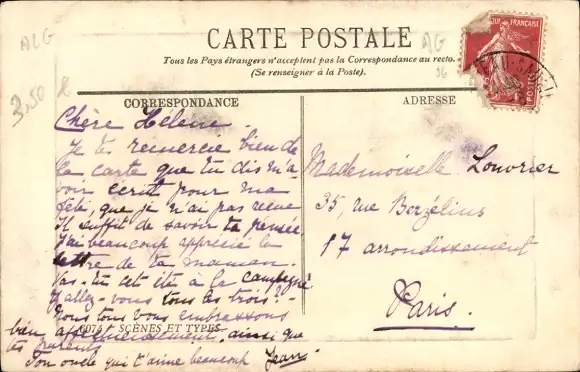 ALG
AG
86
3,50
CARTE POSTALE
Tous les Pays étrangers n'acceptent pas la Correspondance au recto.
(Se renseigner à la Poste).
CORRESPONDANCE
ADRESSE
Chère Hélène
Je te remercie bien de
la carte que tu dis m'a
voir écrit pour ma
fête, que je n'ai pas reçue
Il suffit de savoir ta pensée
J'ai beaucoup apprécié la
lettre de ta maman.
Vas-tu cet été à la campagne
Y allez-vous tous les trois?
Nous tous vous embrassons
bien affectueusement, ainsi que
tes parents
Ton oncle qui t'aime beaucoup Jean
SCÈNES ET TYPES
Mademoiselle Louvrier
35, rue Berzélius
17 arrondissement
Paris.